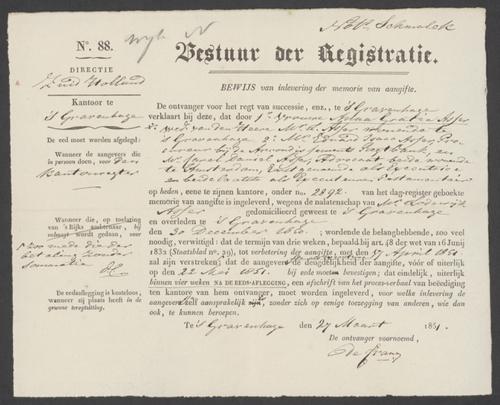 Nº. 88.
wyk N
Nots. Schmolck
Bestuur der Registratie.
DIRECTIE
Zuid Holland
Kantoor te
'S Gravenhage
De eed moet worden afgelegd:
Wanneer de aangevers die in persoon doen, voor den
Kantonregter
Wanneer die, op toelating van 's Rijks ambtenaar, bij
wordt gedaan, voor
De eedsaflegging is kosteloos, wanneer zij plaats heeft in de gewone terugzitting.
BEWIJS van inlevering der memorie van aangifte.
De ontvanger voor het regt van successie, enz., te 'S Gravenhage
verklaart bij deze, dat door 1º. Vrouwe Anna Gratia Asser
wed: van den Heere Mr. L. Asser wonende te
'S Gravenhage 2º. Mr. Eduard Isaac Asser Pro
cureur bij de Arrond. Regtbank en
Mr. Carel Daniel Asser Advocaat beide wonende
te Amsterdam,
en laatstelijk als Executeuren Testamentair
op heden, eene te zijnen kantore, onder no. 2892. van het dag-register geboekte
memorie van aangifte is ingeleverd, wegens de nalatenschap van Mr. Lodewijk
Asser gedomicilieerd geweest te 'S Gravenhage
en overleden te 'S Gravenhage
den 3n December 1850. wordende de belanghebbende, zoo veel
noodig, verwittigd: dat de termijn van drie weken, bepaald bij art. 48 der wet van 16 junij
1832 (Staatsblad nº. 29), tot verbetering der aangifte, met den 17 April 1851
zal zijn verstreken; dat de deugdelijkheid der aangifte, vóór of uiterlijk
op den 22 Mei 1851. bij eede moet bevestigen; dat eindelijk, uiterlijk
binnen vier weken NA DE EEDS-AFLEGGING, een afschrift van het proces-verbaal van beëediging
ten kantore van hem ontvanger, moet worden ingeleverd, voor welke inlevering de
aangevers aansprakelijk zijn, zonder zich op eenige toezegging van anderen, wie dan
ook, te kunnen beroepen.
Te 'S Gravenhage den 27 Maart 1851.
De ontvanger voornoemd,